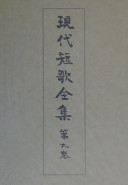 現代短歌全集第九巻